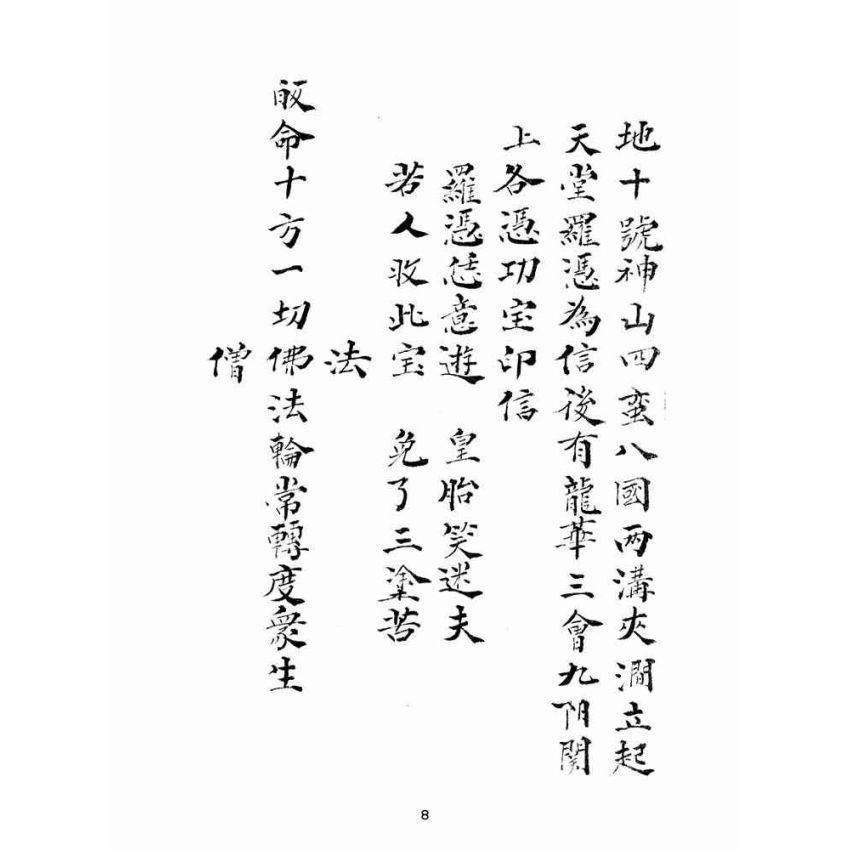 地十號神山四蛮八國两溝夾澗立起
天堂羅憑為信後有龍華三會九阴関
上各憑功宝印信
羅憑恁意遊　皇胎笑迷夫
若人收此宝　免了三塗苦
法
皈命十方一切佛法輪常轉度衆生
僧
8